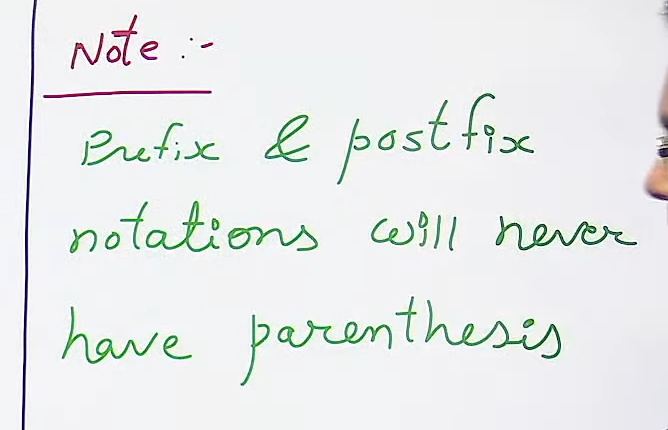 Note :-
Prefix & postfix
notations will never
have parenthesis